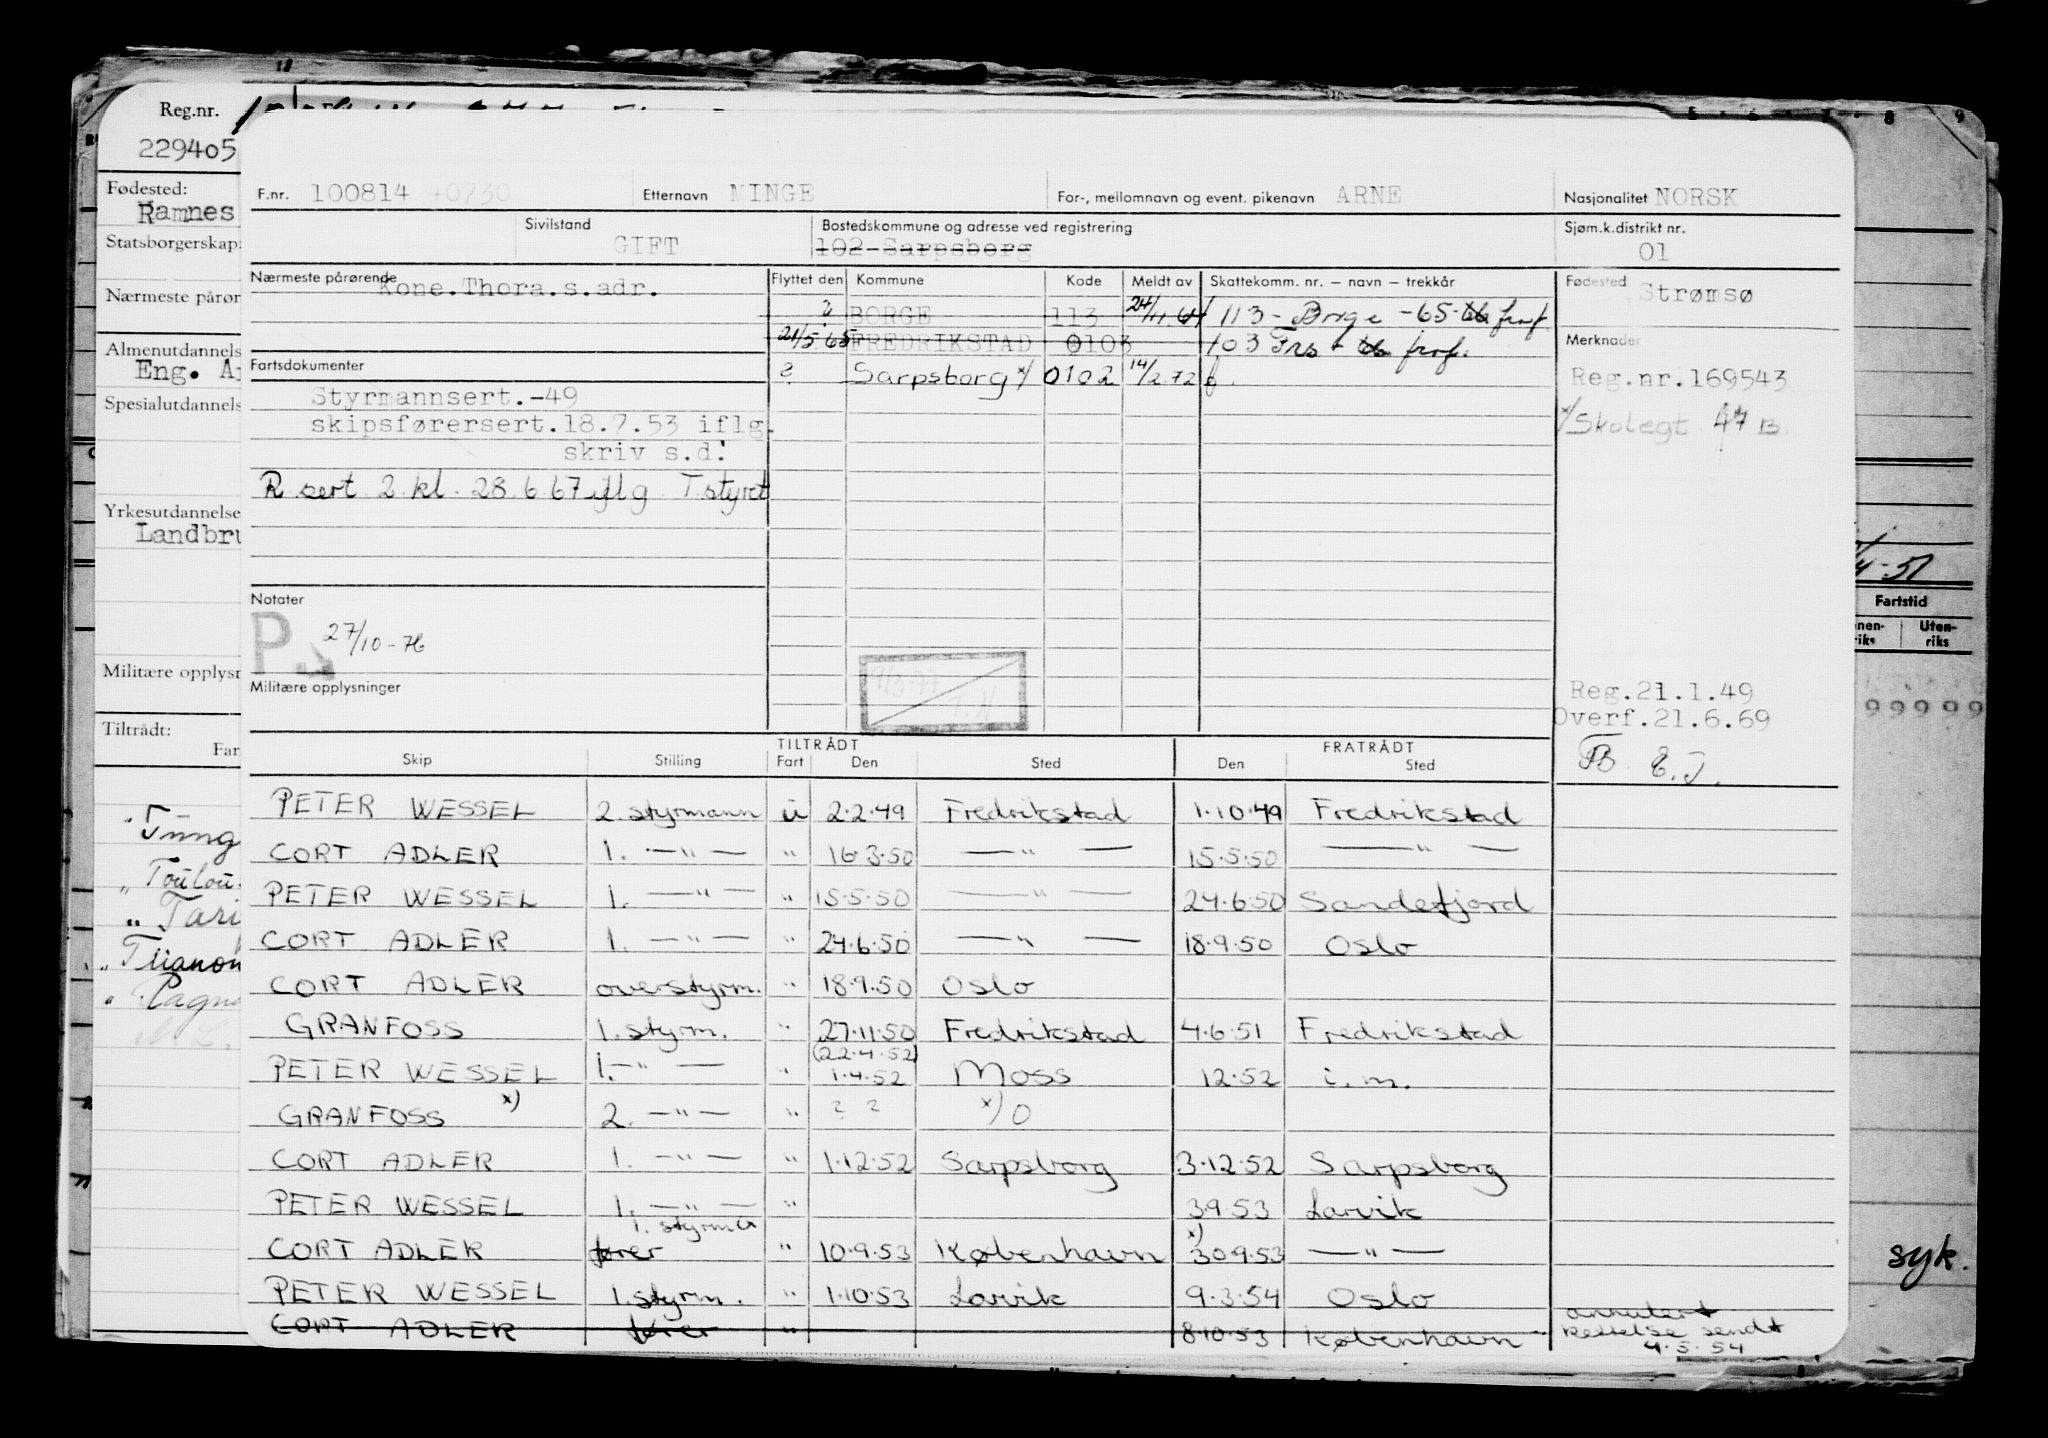 Reg.nr.
229405
Fødested:
Ramnes
Statsborgerskap:
Nærmeste pårør
Almenutdannels
Eng.
Spesialutdannels
Yrkesutdannelse
Landbru
Militære opplysn
Tiltrådt:
Far
F.nr. 100814 +0730 Etternavn MINGE For-, mellomnavn og event. pikenavn ARNE Nasjonalitet NORSK
Sivilstand GIFT Bostedskommune og adresse ved registrering 102-Sarpsborg Sjøm.k.distrikt nr. 01
Nærmeste pårørende Kone.Thora.s.adr. Flyttet den Kommune Kode Meldt av Skattekomm. nr. – navn – trekkår Fødested Strømsø
? BORGE 113 24/11.64 113 - Borge -65
21/5.65 FREDRIKSTAD 0103 103 Merknader
Fartsdokumenter ? Sarpsborg x/ 0102 14/2.72 Reg.nr.169543
Styrmannsert.-49
x/Skolegt
skipsførersert.18.7.53 iflg.
skriv s.d.
R sert 2. kl. 28.6.67 iflg T.styret
Notater
P. 27/10-76
9/3-77
Militære opplysninger
Reg.21.1.49
Overf.21.6.69
E.J.
TILTRÅDT FRATRÅDT
Skip Stilling Fart Den Sted Den Sted
PETER WESSEL 2. styrmann u 2.2.49 Fredrikstad 1.10.49 Fredrikstad
CORT ADLER 1. —"— " 16.3.50 —"— 15.5.50 —"—
PETER WESSEL 1. —"— " 15.5.50 —"— 24.6.50 Sandefjord
CORT ADLER 1. —"— " 24.6.50 —"— 18.9.50 Oslo
CORT ADLER overstyrm. " 18.9.50 Oslo
GRANFOSS 1. styrm. " 27.11.50 Fredrikstad 4.6.51 Fredrikstad
(22.4.52)
PETER WESSEL 1. —"— " 1.4.52 Moss 12.52 i.m.
GRANFOSS x) 2. —"— " ? ? x) 0
CORT ADLER 1. —"— " 1.12.52 Sarpsborg 3.12.52 Sarpsborg
PETER WESSEL 1. —"— " 3.9.53 Larvik
1. styrm.
CORT ADLER fører " 10.9.53 København x) 30.9.53 —"—
PETER WESSEL 1. styrm. " 1.10.53 Larvik 9.3.54 Oslo
CORT ADLER fører " 8.10.53 København annulert
rettelse sendt
4.5.54
Fartstid
Uten-
riks
99999
syk.